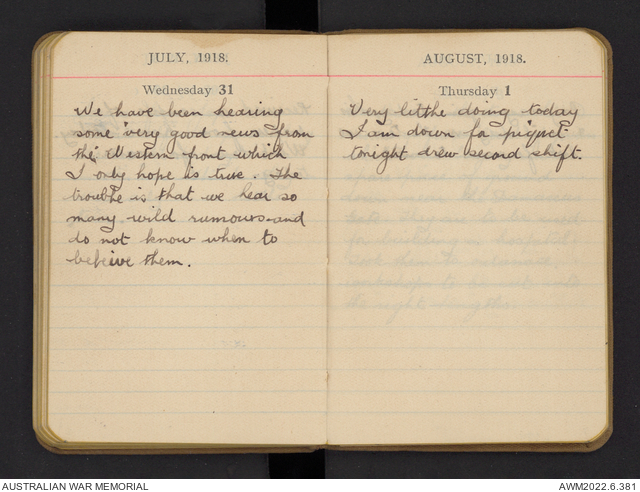 JULY, 1918.
Wednesday 31
We have been hearing
some very good news from
the Western front which
I only hope is true. The
trouble is that we hear so
many wild rumours and
do not know when to
beleive them.
AUGUST, 1918.
Thursday 1
Very little doing today
I am down for piquet
tonight drew second shift.
AUSTRALIAN WAR MEMORIAL
AWM2022.6.381